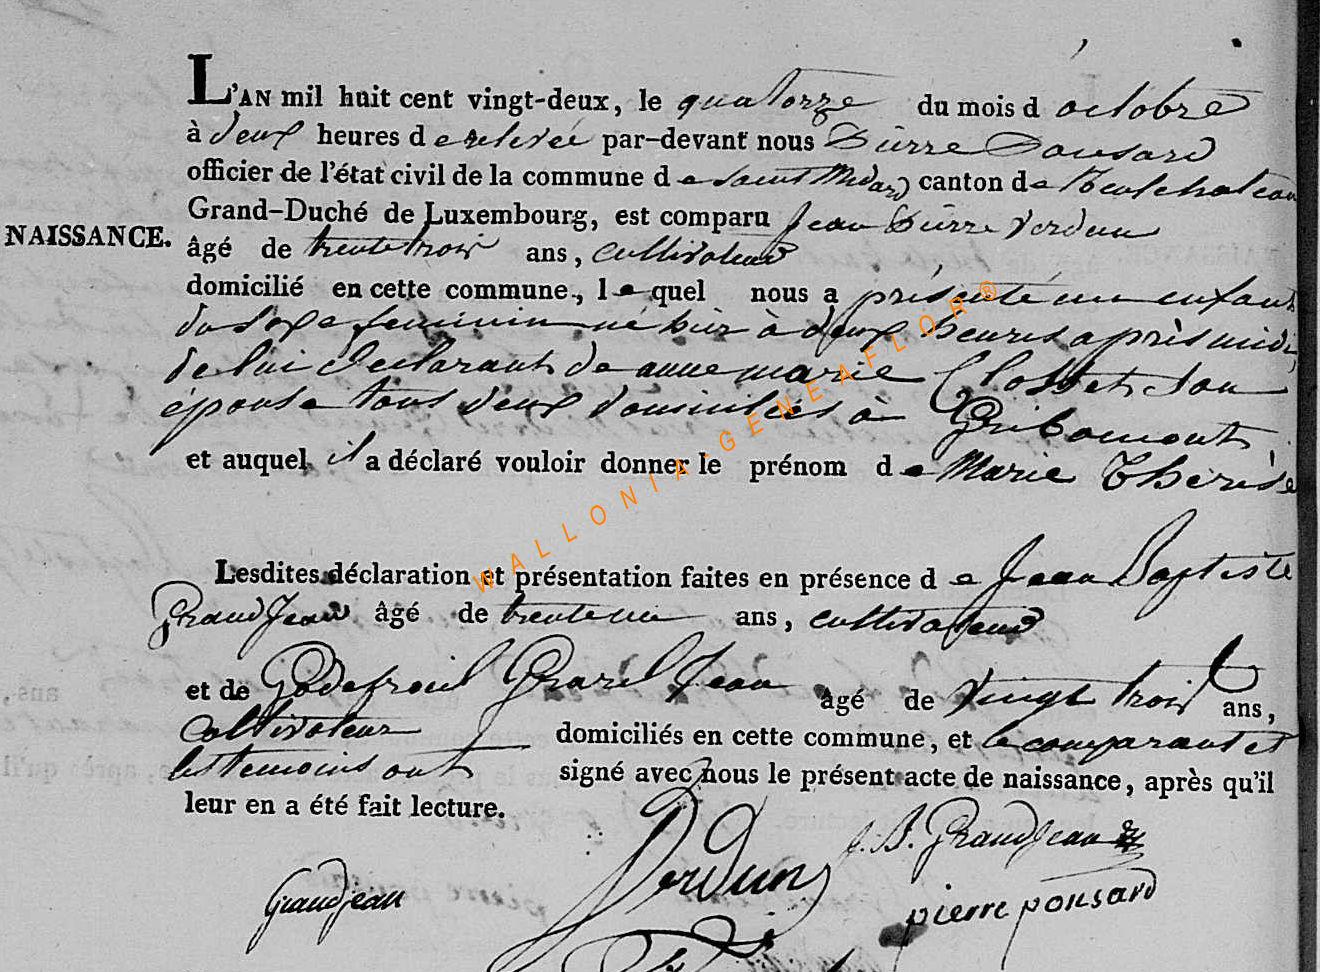 L'AN mil huit cent vingt-deux, le quatorze du mois d octobre
à deux heures de relevée par-devant nous Pierre Ponsard
officier de l'état civil de la commune de Saint Médard canton de Neufchateau
Grand-Duché de Luxembourg, est comparu Jean Pierre Verdun
NAISSANCE.
âgé de trente trois ans, cultivateur
domicilié en cette commune, lequel nous a présenté un enfant
du sexe feminin né hier à deux heures après midi,
de lui declarant, de anne marie Closset, son
épouse tous deux domiciliés à Gribomont
et auquel il a déclaré vouloir donner le prénom de Marie Thérèse
Lesdites déclaration et présentation faites en présence de Jean Baptiste
GrandJean âgé de ans, cultivateur
et de Godefroid GrandJean âgé de vingt trois ans,
cultivateur domiciliés en cette commune, et le comparant et
les temoins ont signé avec nous le présent acte de naissance, après qu'il
leur en a été fait lecture.
J. B. GrandJean
Verdun
Grandjean
pierre ponsard
WALLONIA-GENEAFLOR®